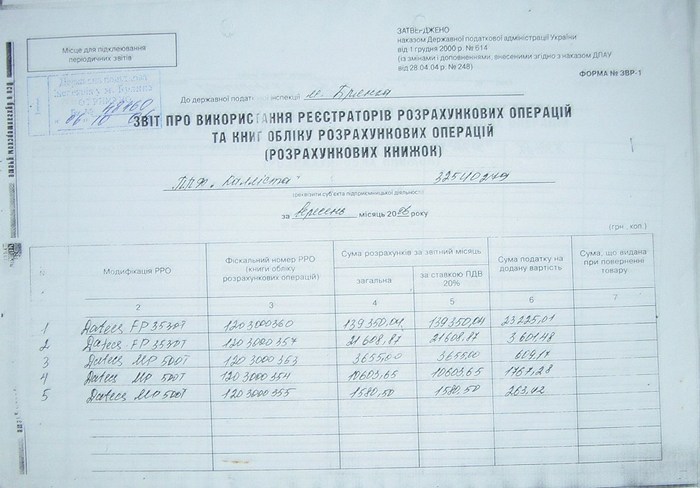 Місце для підклеювання
періодичних звітів
ЗАТВЕРДЖЕНО
наказом Державної податкової адміністрації України
від 1 грудня 2000 р. № 614
(із змінами і доповненнями, внесеними згідно з наказом ДПАУ
від 28.04.04 р. № 248)
ФОРМА № ЗВР-1
48860
06 10 06
До державної податкової інспекції м.
ЗВІТ ПРО ВИКОРИСТАННЯ РЕЄСТРАТОРІВ РОЗРАХУНКОВИХ ОПЕРАЦІЙ
ТА КНИГ ОБЛІКУ РОЗРАХУНКОВИХ ОПЕРАЦІЙ
(РОЗРАХУНКОВИХ КНИЖОК)
ППФ „Каліста" 32540279
(реквізити суб'єкта підприємницької діяльності)
за вересень місяць 2006 року
(грн., коп.)
Модифікація РРО
Фіскальний номер РРО
(книги обліку
розрахункових операцій)
Сума розрахунків за звітний місяць
загальна
за ставкою ПДВ
20%
Сума податку на
додану вартість
Сума, що видана
при поверненні
товару
2 3 4 5 6 7
1 Datecs FP3530T 1203000360 139350,04 139350,04 23225,01
2 Datecs FP3530T 1203000357 21608,87 21608,87 3601,48
3 Datecs MP500T 1203000363 3655,00 3655,00 609,17
4 Datecs MP500T 1203000354 10603,65 10603,65 1767,28
5 Datecs MP500T 1203000355 1580,50 1580,50 263,42